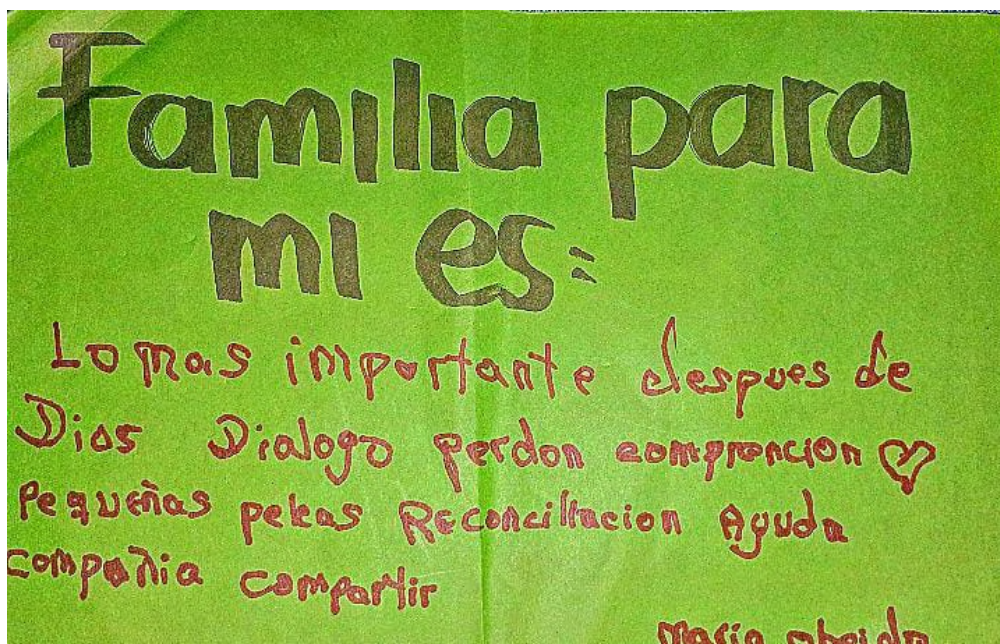 Familia para
mi es:
Lo mas importante despues de
Dios Dialogo perdon comprencion
Pequeñas peleas Reconciliacion Ayuda
compañia compartir
Maria